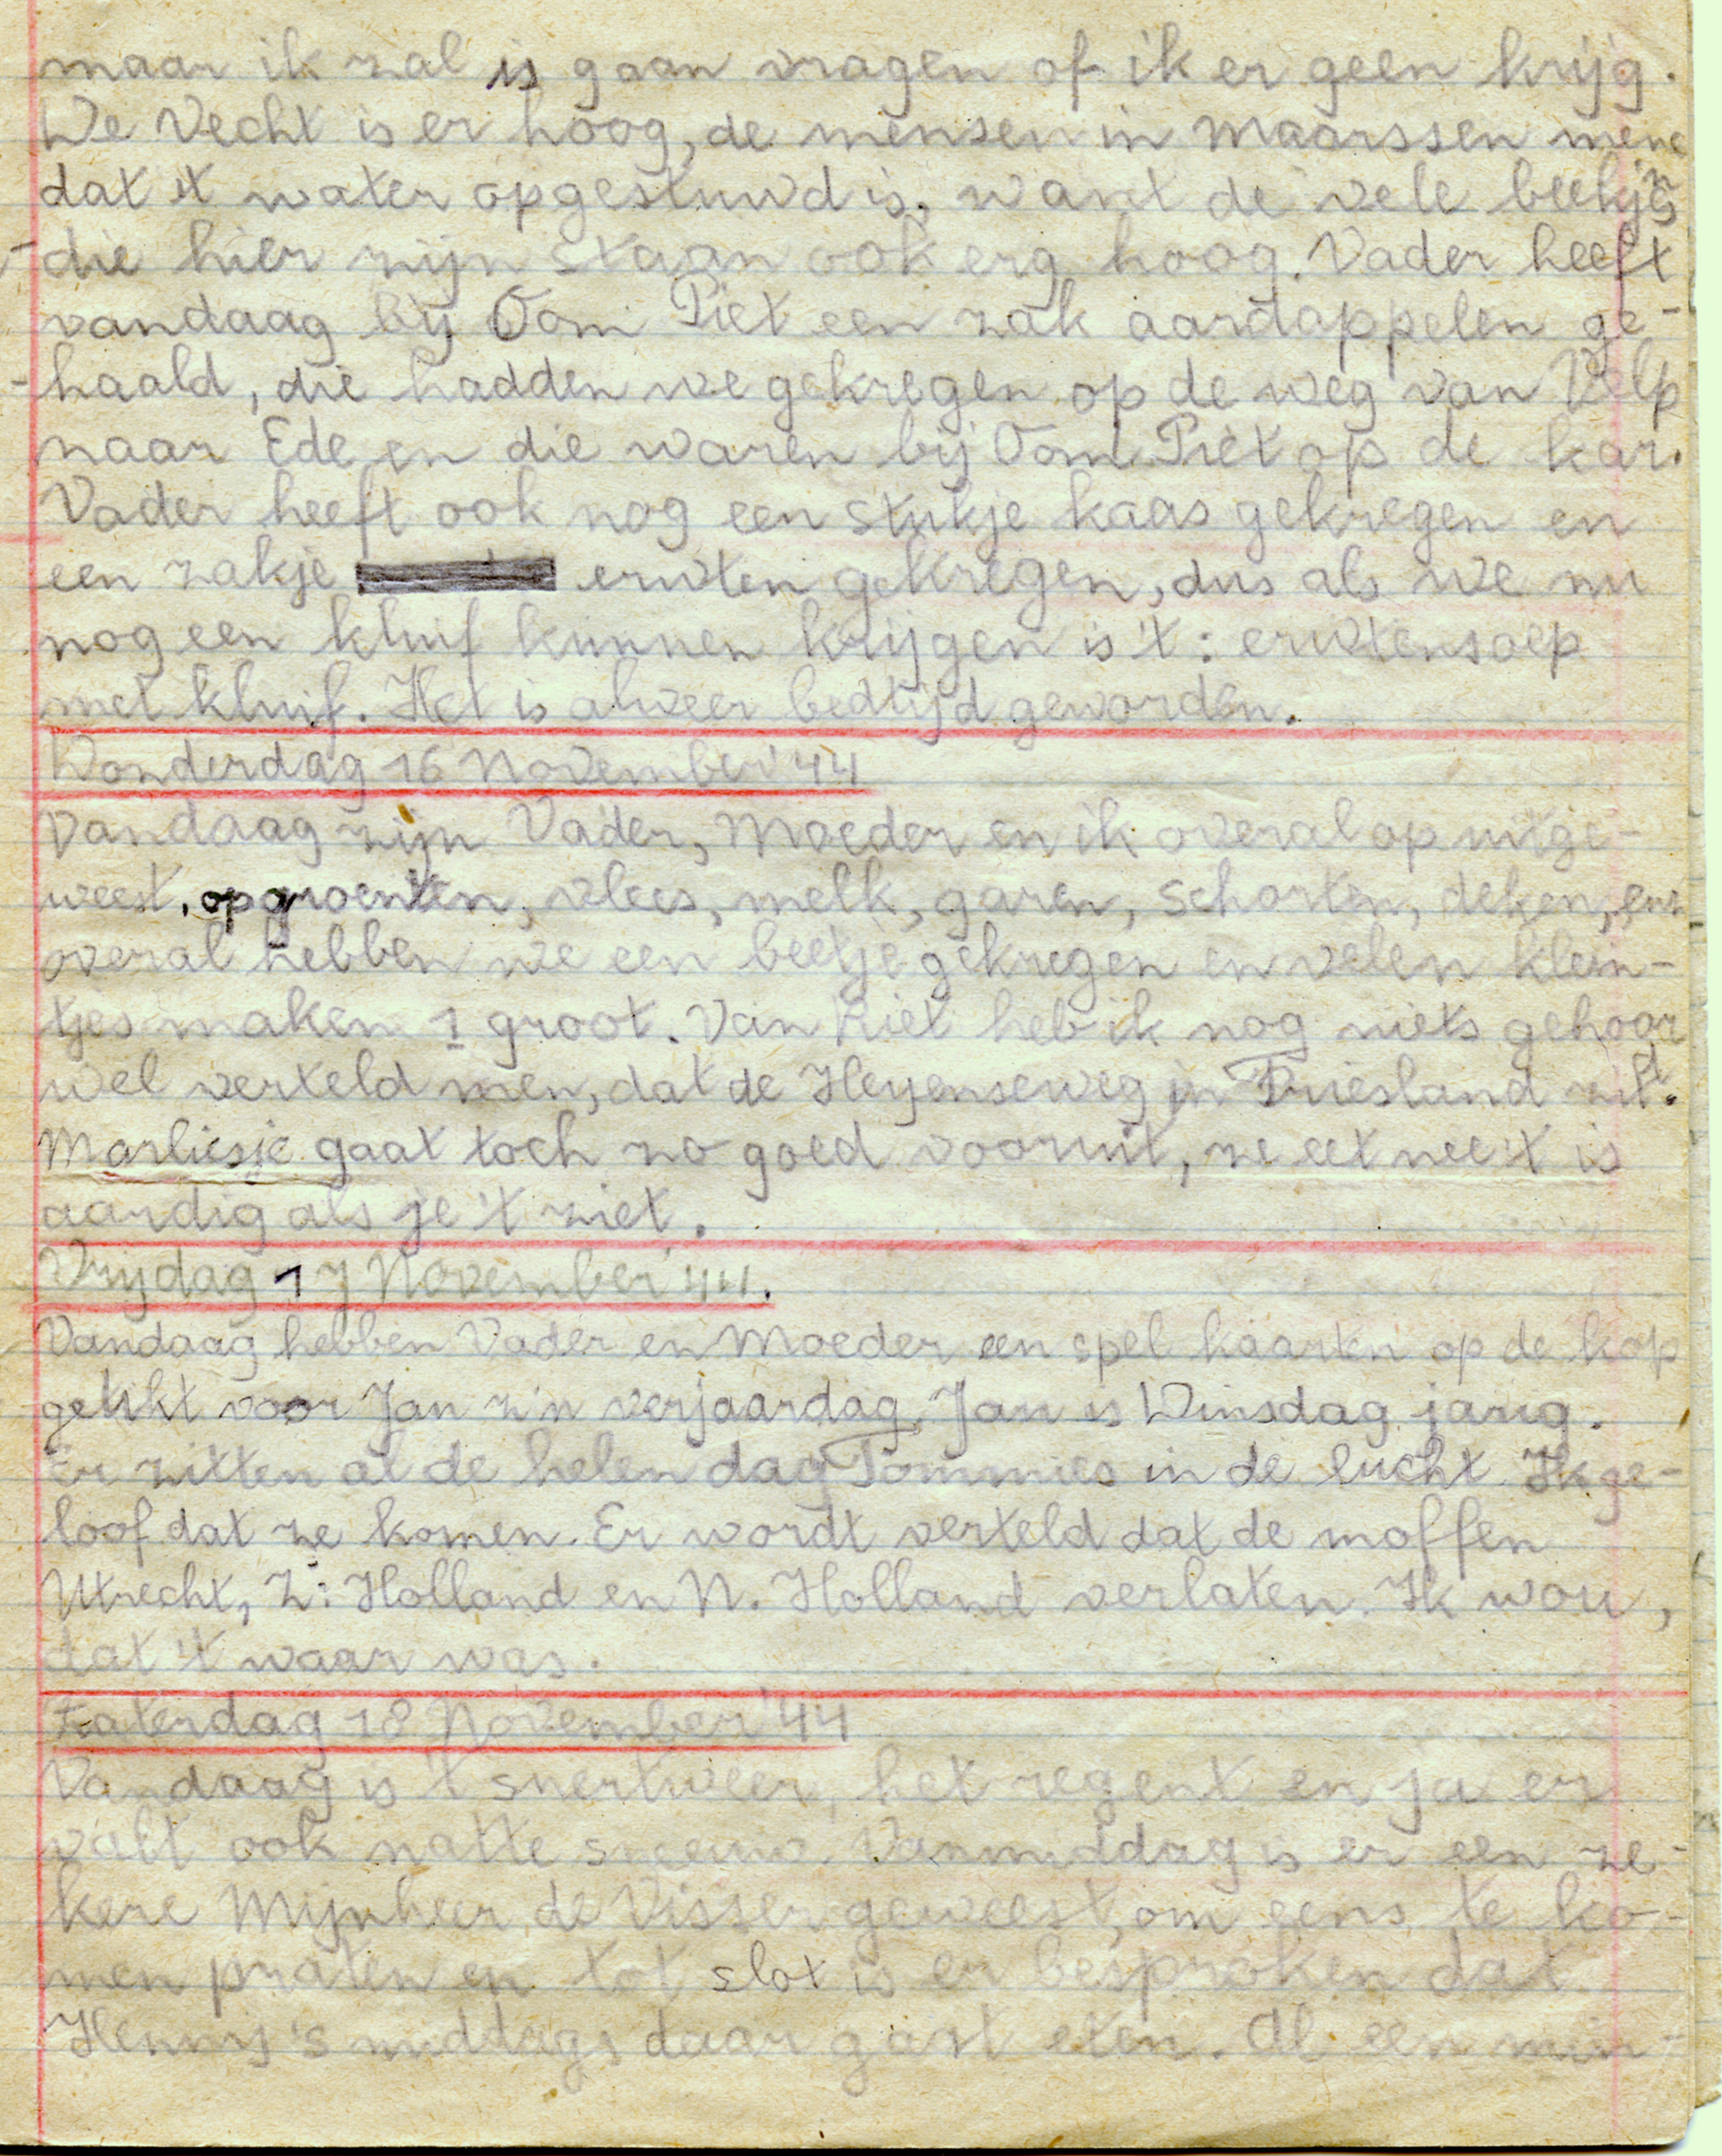 maar ik zal is gaan vragen of ik er geen krijg.
De Vecht is er hoog, de mensen in Maarssen mene
dat 't water opgestuwd is, want de vele beekjes
die hier zijn staan ook erg hoog. Vader heeft
vandaag bij Oom Piet een zak aardappelen ge-
haald, die hadden we gekregen op de weg van Velp
naar Ede en die waren bij Oom Piet op de kar.
Vader heeft ook nog een stukje kaas gekregen en
een zakje erwten gekregen, dus als we nu
nog een kluif kunnen krijgen is 't: erwtensoep
met kluif. Het is alweer bedtijd geworden.
Donderdag 16 November '44
Vandaag zijn Vader, Moeder en ik overal op uitge-
weest, op groenten, vlees, melk, garen, schorten, deken, enz
overal hebben we een beetje gekregen en velen klein-
tjes maken 1 groot. Van Riet heb ik nog niets gehoord
wel verteld men, dat de Heyenseweg in Friesland zit.
Marliesje gaat toch zo goed vooruit, ze eet nee 't is
aardig als je 't ziet.
Vrijdag 17 November '44.
Vandaag hebben Vader en Moeder een spel kaarten op de kop
getikt voor Jan z'n verjaardag. Jan is Dinsdag jarig.
Er zitten al de helen dag Tommies in de lucht. Ik ge-
loof dat ze komen. Er wordt verteld dat de moffen
Utrecht, Z: Holland en N. Holland verlaten. Ik wou,
dat 't waar was.
Zaterdag 18 November '44
Vandaag is 't snertweer, het regent en ja er
valt ook natte sneeuw. Vanmiddag is er een ze-
kere Mijnheer de Visser geweest, om eens te ko-
men praten en tot slot is er besproken dat
Henny 's middags daar gaat eten. Al een min-